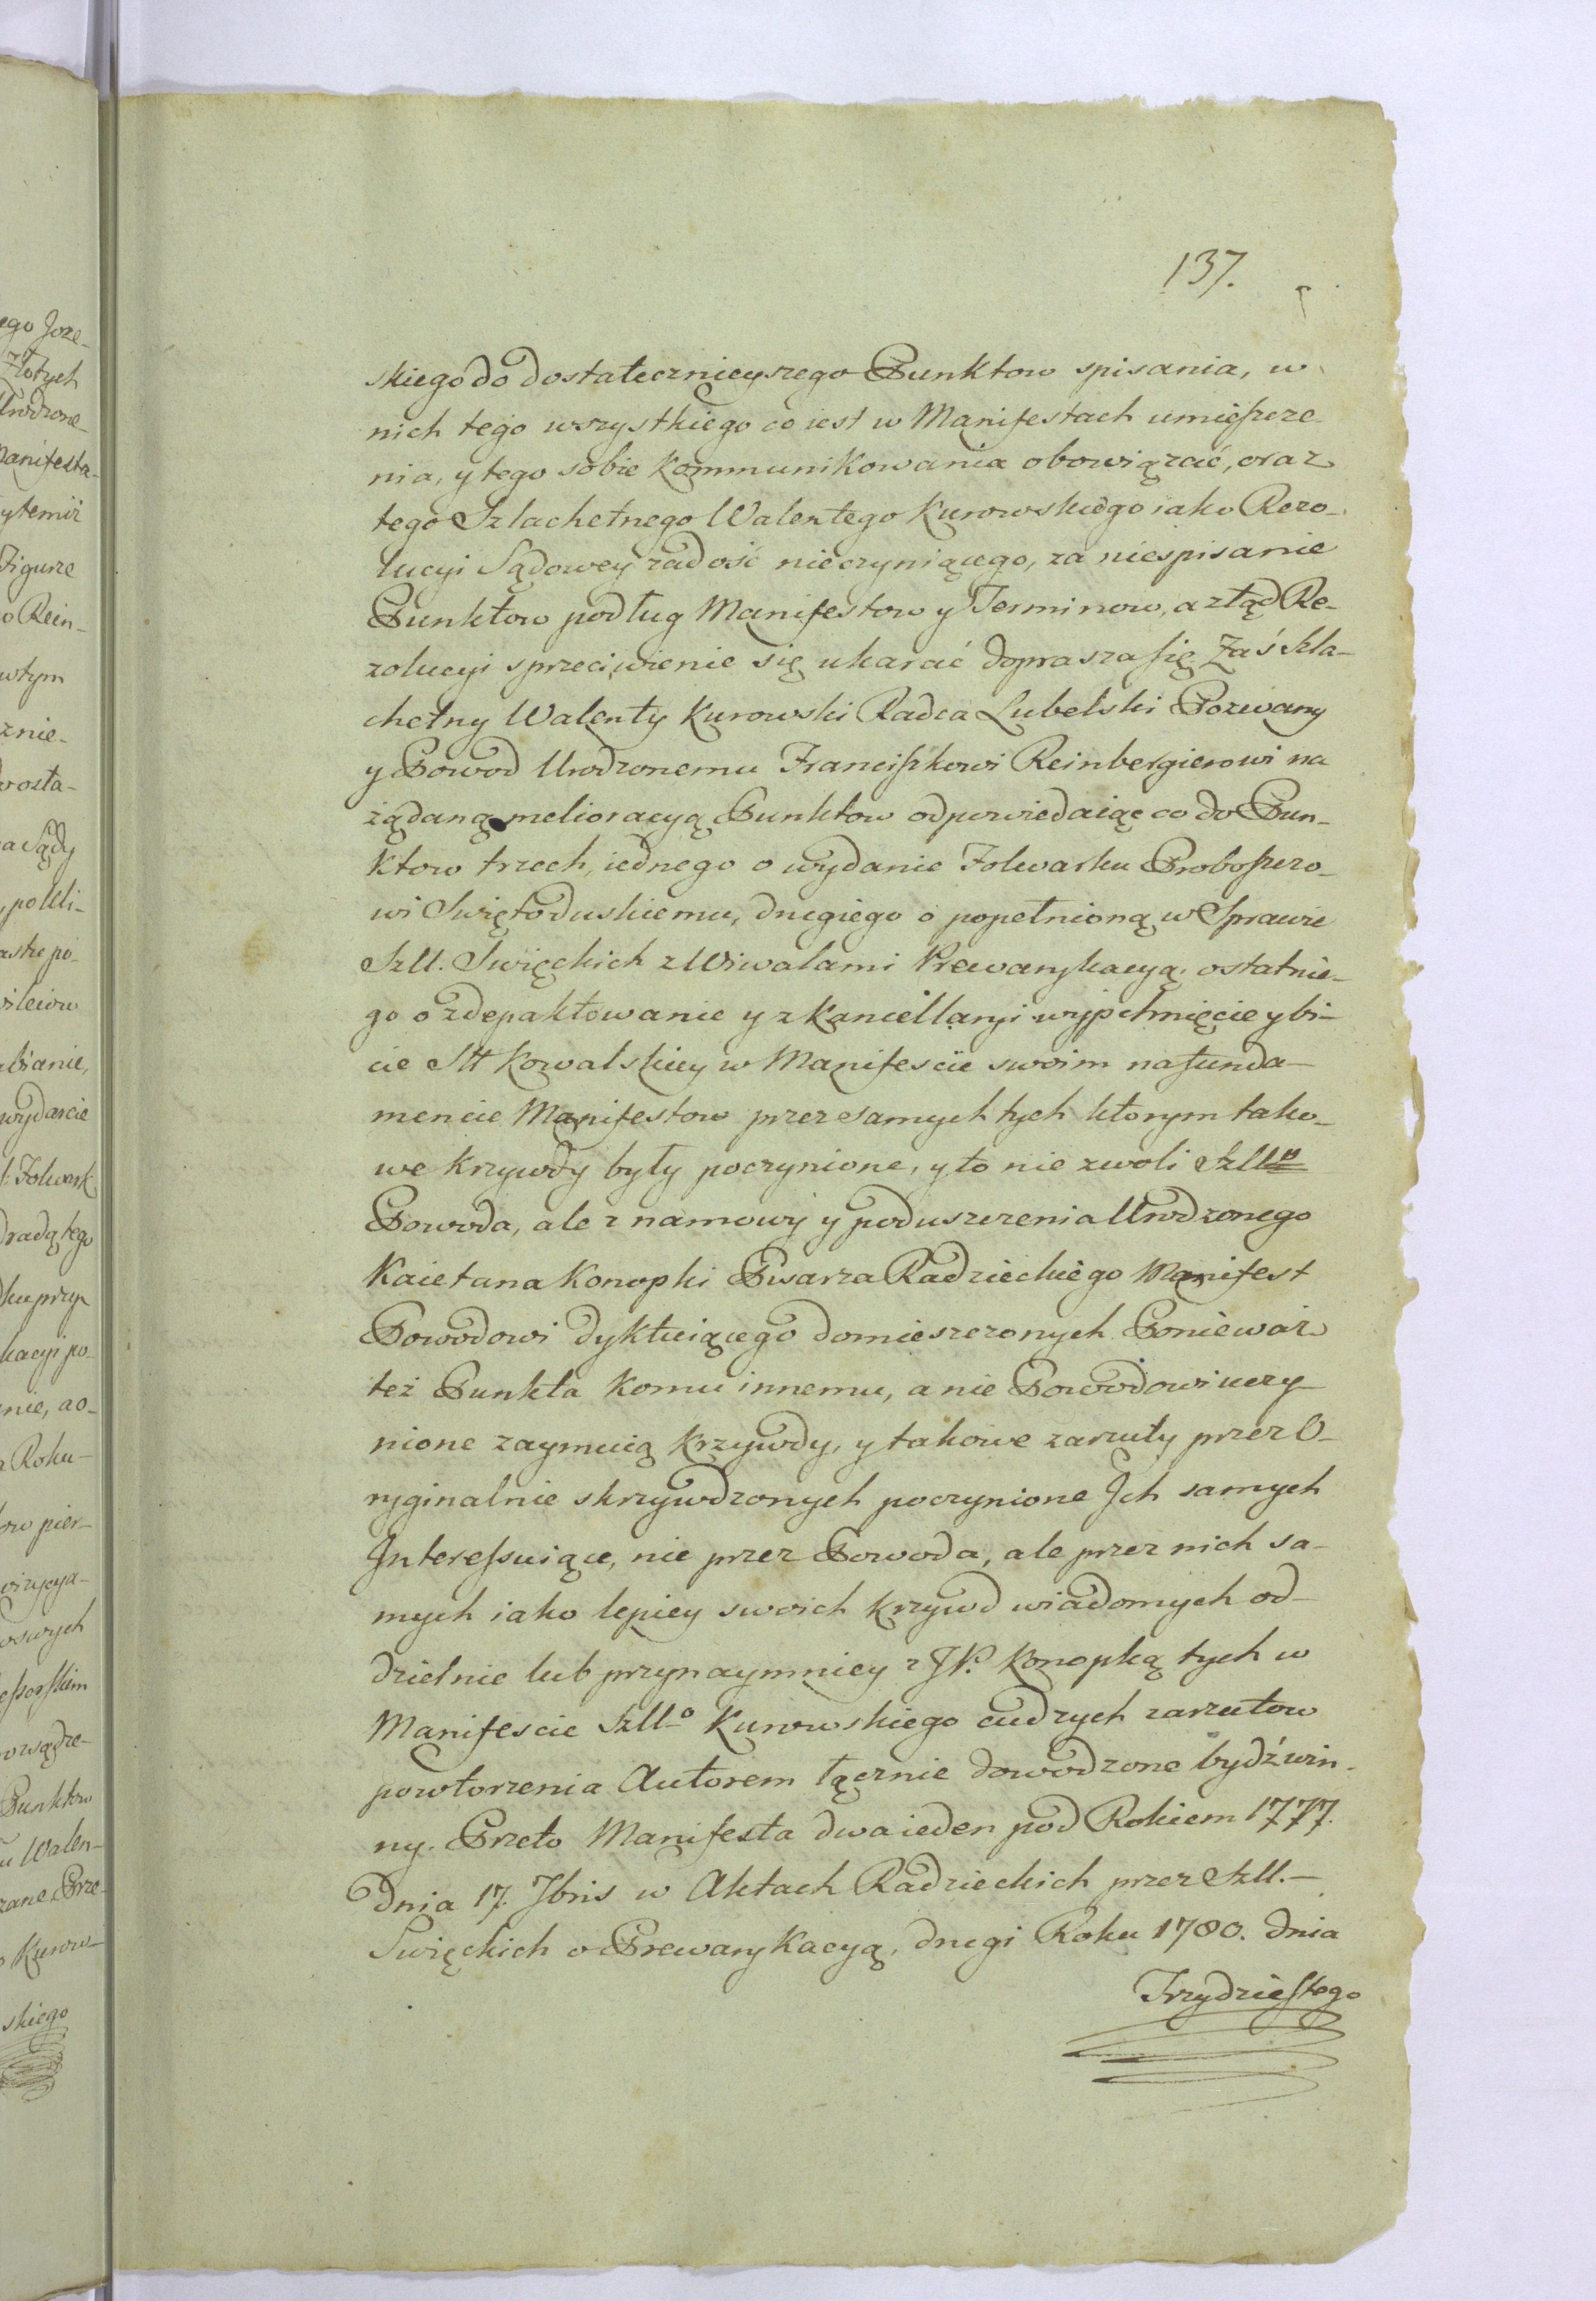 137.
skiego do dostatecznieyszego Punktow spisania, w
nich tego wszystkiego co iest w Manifestach umieszcze
nia, y tego sobie kommunikowania obowiązać, oraz
tego Szlachetnego Walentego Kurowskiego iako Rezo-
lucyi Sądowey zadość nieczyniącego, za niespisanie
Punktow podług Manifestow y Terminow, a ztąd Re-
zolucyi sprzeciwienie się ukarać doprasza się. Zaś Szla-
chetny Walenty Kurowski Radca Lubelski Pozwany
y Powod Urodzonemu Franciszkowi Reinbergierowi na
żądaną melioracyą Punktow odpowiedaiąc co do Pun-
ktow trzech, iednego o wydanie Folwarku Proboszczo-
wi Swiętoduskiemu, drugiego o popełnioną w Sprawie
Szll. Swięckich z Wiwalami Prewarykacyą, ostatnie-
go o zdepaktowanie y z Kancellaryi wypchnięcie y bi-
cie Stt Kowalskiey w Manifeście swoim na funda-
mencie Manifestow przez samych tych ktorym tako-
we krzywdy były poczynione, y to nie z woli Szllo
Powoda, ale z namowy y poduszczenia Urodzonego
Kaietana Konopki Pisarza Radzieckiego Manifest
Powodowi dyktuiącego domieszczonych. Ponieważ
też Punkta komu innemu, a nie Powodowi uczy-
nione zaymuią krzywdy, y takowe zarzuty przez O-
ryginalnie skrzywdzonych poczynione Ich samych
Interessuiące, nie przez Powoda, ale przez nich sa-
mych iako lepiey swoich krzywd wiadomych od-
dzielnie lub przynaymniey z JP. Konopką tych w
Manifescie Szllo Kurowskiego cudzych zarzutow
powtorzenia Autorem łącznie dowodzone bydź win-
ny. Przeto Manifesta dwa ieden pod Rokiem 1777.
dnia 17. 7bris w Aktach Radzieckich przez Szll.-
Swięckich o Prewarykacyą, drugi Roku 1780. dnia
Trzydziestego